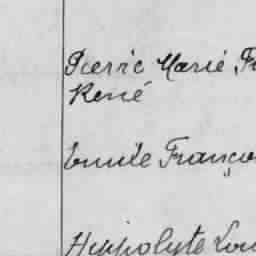 Pierre Marie Fr
René
Emile Franço
Hippolyte Lou